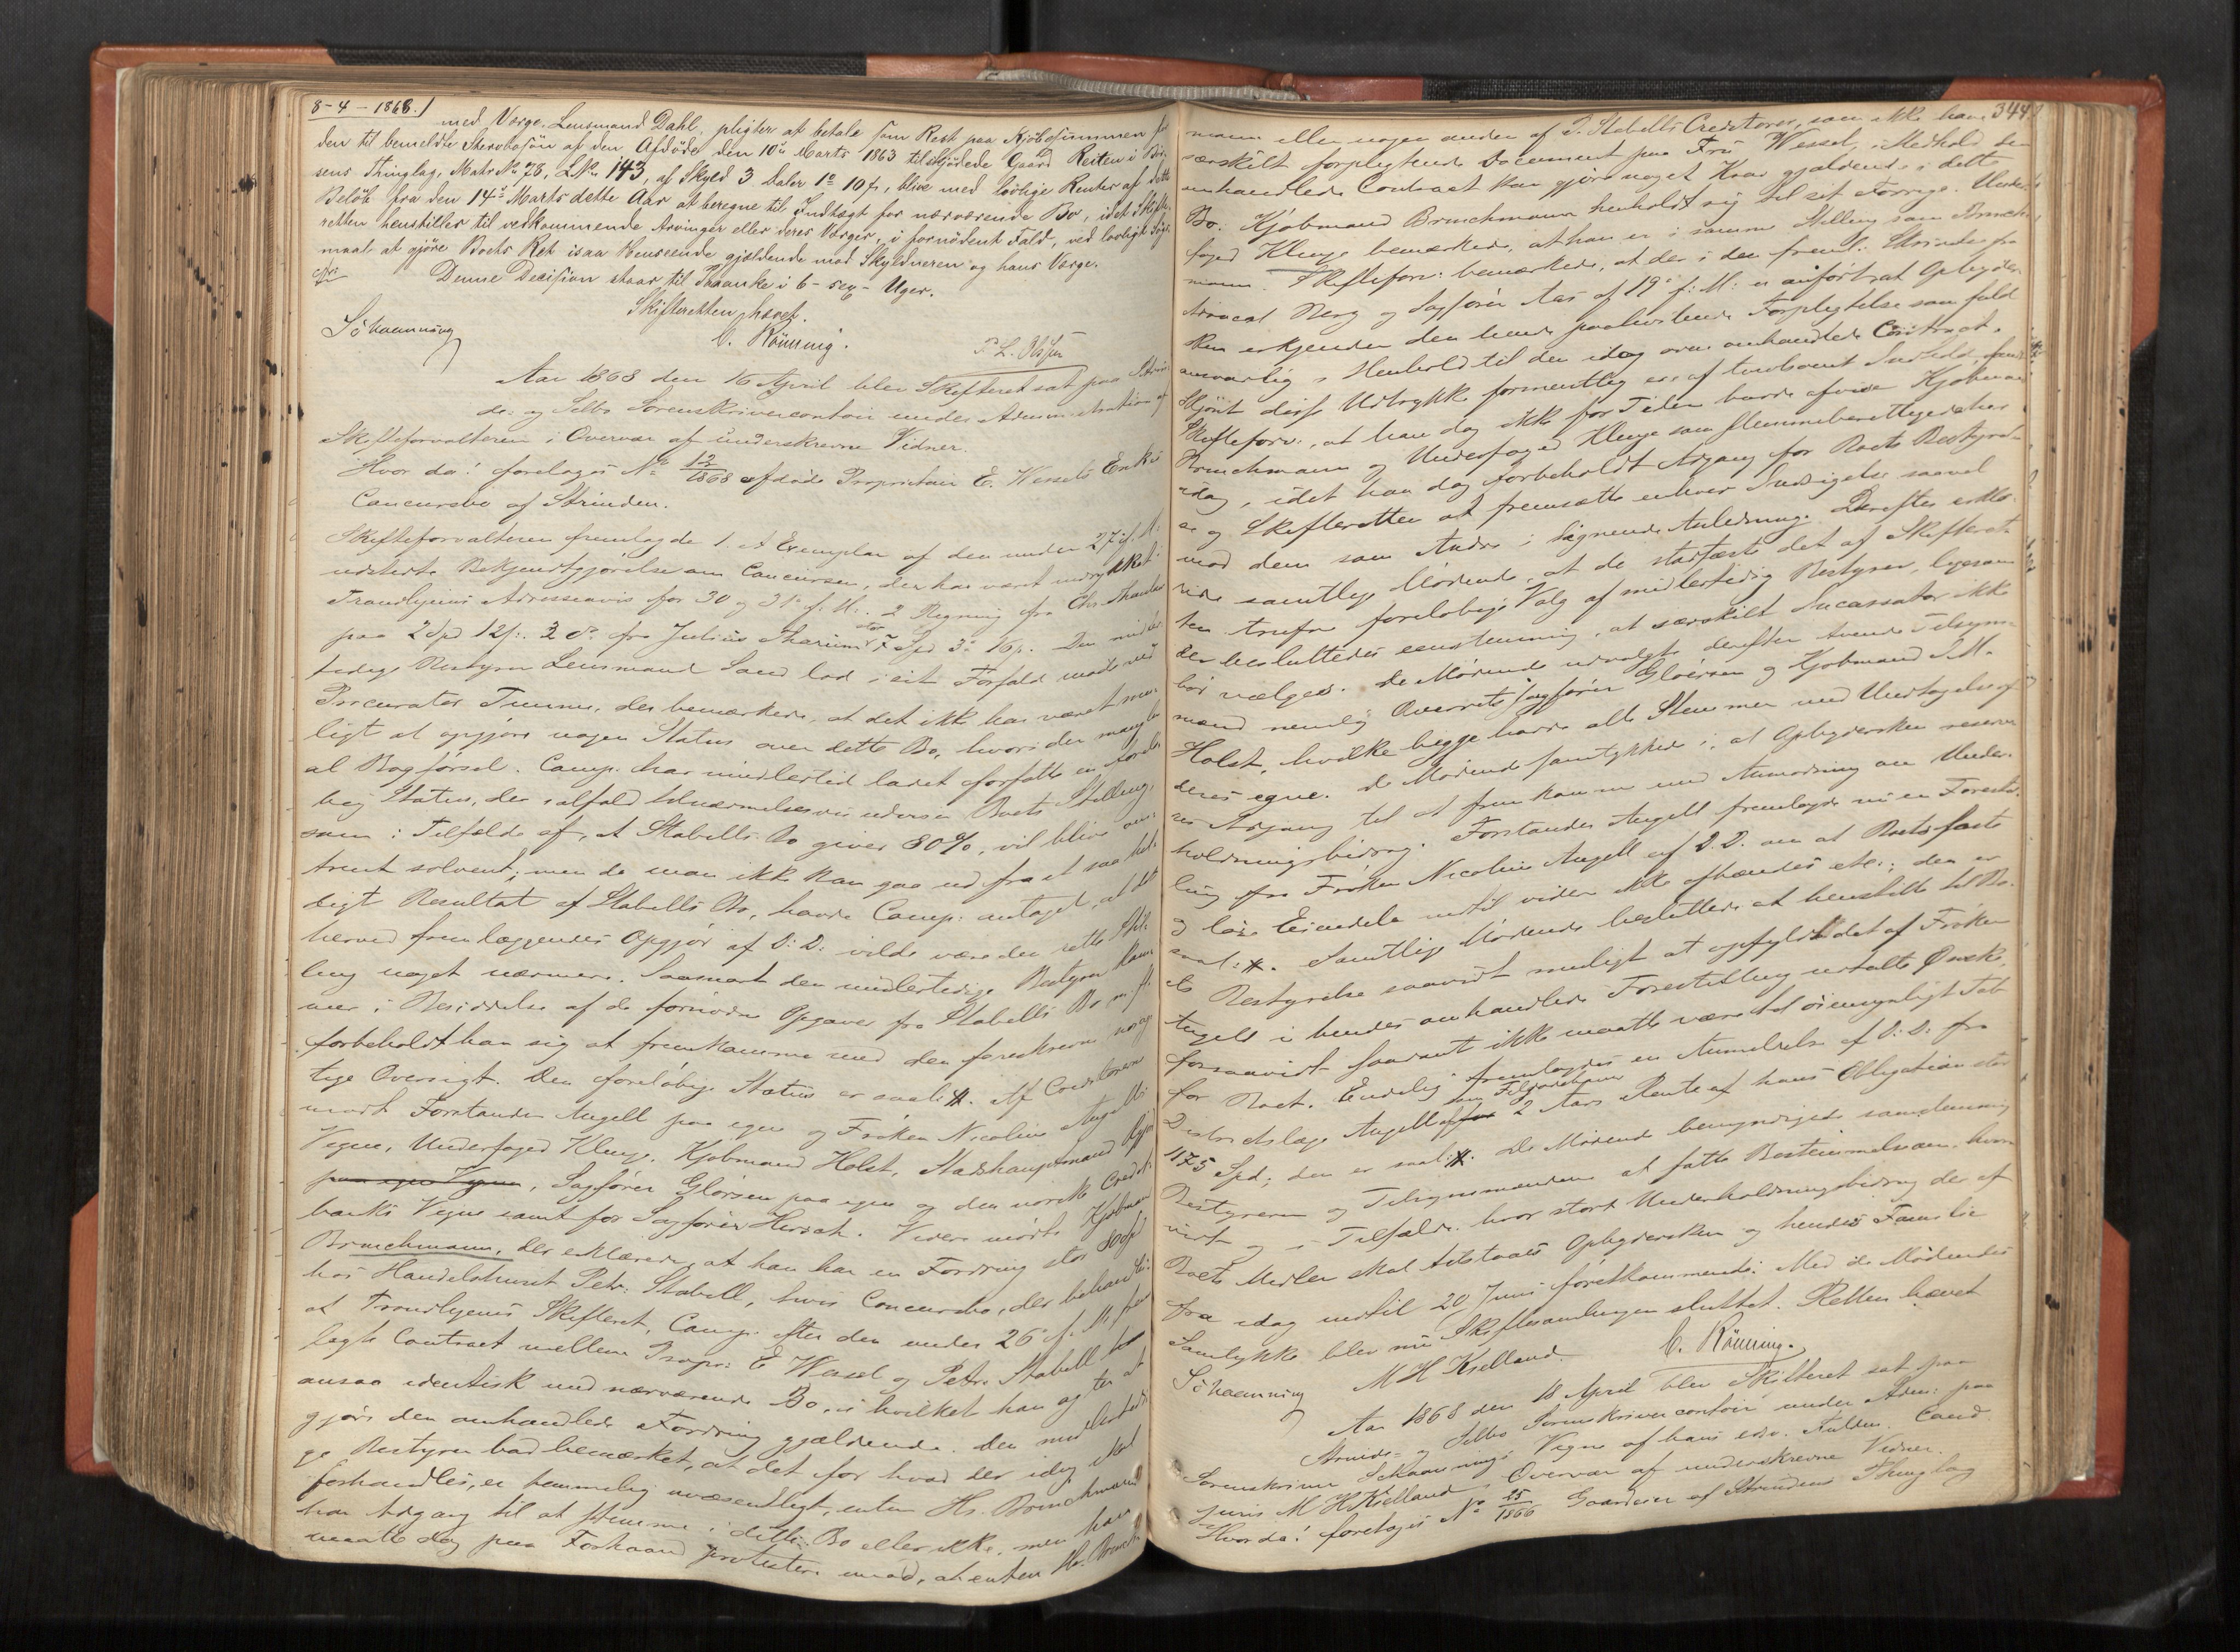 8-4-1868.
med Værge, Lensmand Dahl, pligter at betale som Rest paa Kjøbesummen for
den til bemeldte Stervbosøn af den Afdøde den 10de Marts 1863 tilskjødede Gaard Reiten i Bu-
sens Thinglag, Matr No 78, LNo 143, af Skyld 3 Daler 1 10 f, blive med lovlige Renter af dette
Beløb fra den 14de Marts dette Aar at beregne til Indtægt for nærværende Bo, idet Skifte-
retten henstiller til vedkommende Arvinger eller deres Værger, i fornødent Fald, ved lovligt Søgs-
maal at gjøre Boets Ret i saa Henseende gjældende mod Skyldneren og hans Værge.
Denne Decision staar til Paaanke i 6-sex-Uger.
Skifteretten hævet.
Schaanning C. Rønning. P. L. Olsen
Aar 1868 den 16 April blev Skifteret sat paa Strin-
de- og Selbo Sorenskrivercontoir under Administration af
Skifteforvalteren i Overvær af underskrevne Vidner.
Hvor da! foretoges No 12/1868 afdøde Proprietair E. Wessels Enkes
Concursbo af Strinden.
Skifteforvalteren fremlagde 1. et Exemplar af den under 27 f. M.
udstedte Bekjendtgjørelse om Concursen, der har været indrykket i
Trondhjems Adresseavis for 30 og 31 f. M. 2 Regning fra Chr. Thaulow
paa 2 Spd 12 f: 3 do fra Julius Tharum stor 7 Spd 3 16 f. Den midler-
tidige Bestyrer Lensmand Sand lod i sit Forfald møde ved
Procurator Tmmm, der bemærkede, at det ikke har været mu-
ligt at opgjøre nogen Status over dette Bo, hvori der mangler
al Bogførsel. Comp. har imidlertid ladet forfatte en foreløbig
Status, der i alfald tilnærmelsesvis udviser Boets Stilling,
som i Tilfælde af, at Stabells Bo giver 80%, vil blive om-
trent solvent; men da man ikke kan gaa ud fra et saa hel-
digt Resultat af Stabells Bo, havde Comp. antaget, at det
herved fremlæggendes Opgjør af D. D. vilde være den rette Stil-
ling noget nærmere. Saasnart den midlertidige Bestyrer kom-
mer i Besiddelse af de fornødne Opgaver fra Stabells Bo m. fl.
forbeholdt han sig at fremkomme med den foreskrevne nøiag-
tige Oversigt. Den foreløbige Status er saal. Af Creditorer
mødt Forstander Angell paa egne og Frøken Nicoline Angells
Vegne, Underfoged Klinge, Kjøbmand Holst, Stadshauptmand
paa egne Vegne, Sagfører Gløersen paa egne og den norske Credit-
banks Vegne samt for Sagfører Hirsch. Videre mødte Kjøbmand
Bruchmann, der erklærede, at han har en Fordring stor 80 Spd
hos Handelshuset Petr. Stabell, hvis Concursbo, der behandles
af Trondhjems Skifteret, Comp. efter den under 26 f. M. frem-
lagte Contract mellem Propr. E. Wessel og Petr. Stabell
ansaa identisk med nærværende Bo, i hvilket han agter at
gjøre den omhandlede Fordring gjældende. Den midlertidi-
ge Bestyrer bad bemærket, at det for hvad der idag skal
forhandles, er temmelig uvæsentligt, enten Hr. Bruchmann
har Adgang til at stemme i dette Bo eller ikke, men han
maatte dog paa Forhaand protestere imod, at enten Hr. Bruch-
344
mann eller nogen anden af P. Stabells Creditorer, som ikke have
særskilt forpligtende Document paa Fru Wessel, i Medhold den
omhandlede Contract kan gjøre noget Krav gjældende i dette
Bo. Kjøbmand Bruchmann henholdt sig til sit Forrige. Under-
foged Klinge bemærkede, at han er i samme Stilling som Bruch-
mann. Skifteforv. bemærkede, at der i den freml. Skrivelse fra
Advocat Berg og Sagfører Aas af 19 f. M. er anført, at Opbyder-
sken erkjender den hende paahvilende Forpligtelse som fuld
ansvarlig i Henhold til den idag oven omhandlede Contract.
Skjønt disse Udtrykke formentlig er af tvivlsomt Indhold, fandt
Skifteforv., at han dog ikke for Tiden burde afvise Kjøbmand
Bruchmann og Underfoged Klinge som stemmeberettigede her
idag, idet han dog forbeholdt Adgang for Boets Bestyrel-
se og Skifteretten at fremsætte enhver Indsigelse saavel
mod dem som Andre i lignende Anledning. Derefter erklæ-
rede samtlige Mødende, at de stadfæste det af Skifteret-
ten trufne foreløbige Valg af midlertidig Bestyrer, ligesom
der besluttedes eenstemmig, at særskilt Incassator ikke
bør vælges. De Mødende udvalgte derefter tvende Tilsyns-
mænd nemlig Overretssagfører Gløersen og Kjøbmand J. M.
Holst, hvilke begge havde alle Stemmer med Undtagelse af
deres egne. De Mødende samtykkede i, at Opbydersken reserve-
res Adgang til at fremkomme med Anmodning om Under-
holdningsbidrag. Forstander Angell fremlagde nu en Forestil-
ling fra Frøken Nicoline Angell af D. D. om at Boets faste
og løse Eiendele indtil videre ikke afhændes etc.; den er
saal. Samtlige Mødende besluttede at henstille til Bo-
ets Bestyrelse saavidt muligt at opfylde det af Frøken
Angell i hendes omhandlede Forestilling udtalte Ønske,
forsaavidt saadant ikke maatte være til øiensynligt Tab
for Boet. Endelig fremlagdes en Anmeldelse af D. D. fra
Districtslæge Angell for som Tilgodehavende 2 Aars Rente af hans Obligation stor
1175 Spd; den er saal. De Mødende bemyndigede samstemmig
Bestyreren og Tilsynsmændene at fatte Bestemmelse om, hvor-
vidt og i Tilfælde hvor stort Underholdningsbidrag der af
Boets Midler skal tilstaaes Opbydersken og hendes Familie
fra idag indtil 20 Juni førstkommende. Med de Mødendes
Samtykke blev nu Skiftesamlingen sluttet. Retten hævet
Schaanning M H Kielland. C. Rønning.
Aar 1868 den 18 April blev Skifteret sat paa
Strinde- og Selbo Sorenskrivercontoir under Adm: paa
Sorenskriver Schaannings Vegne af hans edsv. Fuldm. Cand
juris M H Kielland i Overvær af underskrevne Vidner.
Hvor da! foretoges No 25/1866 Gaardeier af Strindens Thinglag